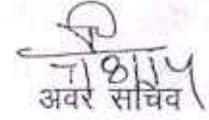 7/8/14
अवर सचिव